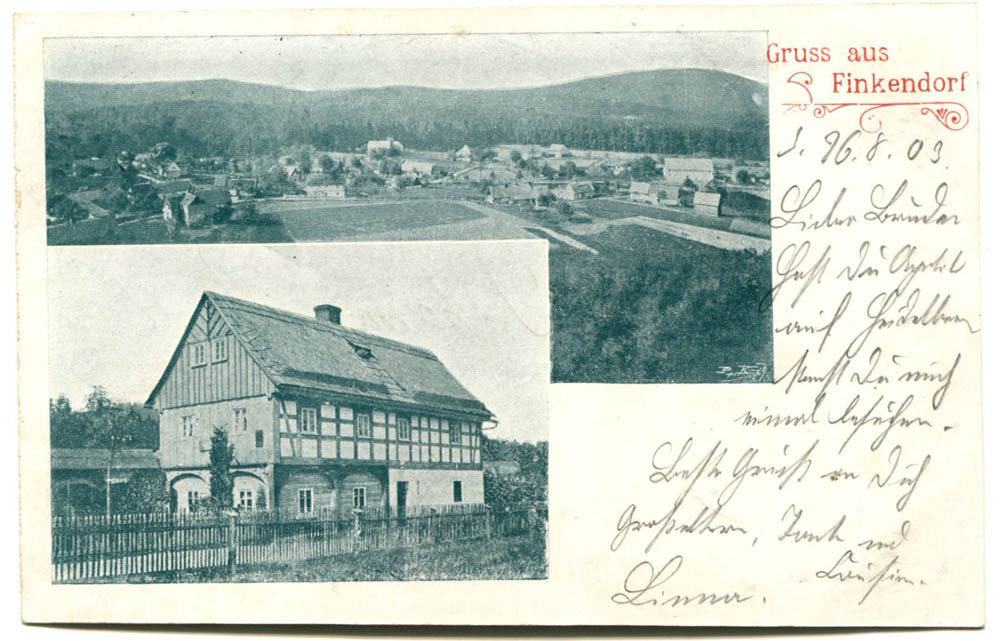 Gruss aus
Finkendorf
d. 16.8.03.
Lieber Bruder
Hast Du Aptit
auf Heidelbeern
kanst Du mich
einmal besuchen.
Beste Grüße an Dich
Großeltern, Tante und
Cousin.
Linna.